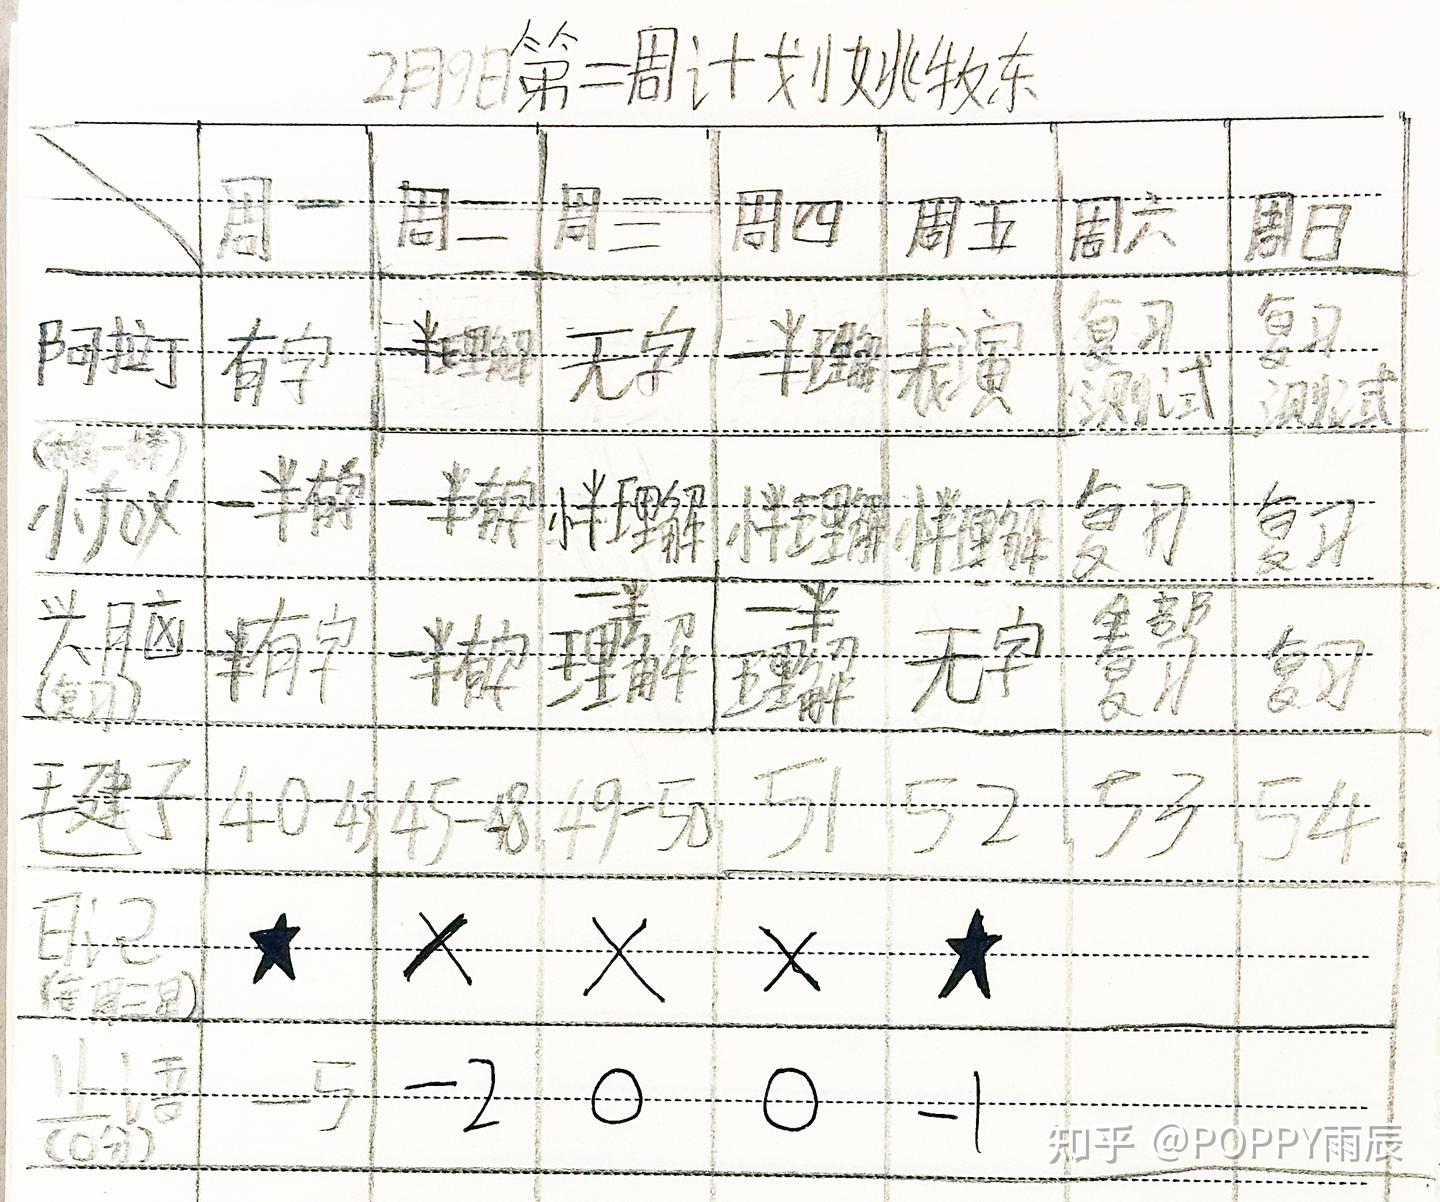 2月9日第二周计划姚牧东
周一 周二 周三 周四 周五 周六 周日
阿拉丁 有字 一半理解 无字 一半理解 表演 复习测试 复习测试
一半有字 一半有字 一半理解 一半理解 一半理解 复习 复习
头脑(复习) 半有字 一半有字 一半理解 一半理解 无字 全部复习 复习
毛建子 40-45 45-48 49-50 51 52 53 54
日记 ★ × × × ★
(10分) -5 -2 0 0 -1
知乎 @POPPY雨辰